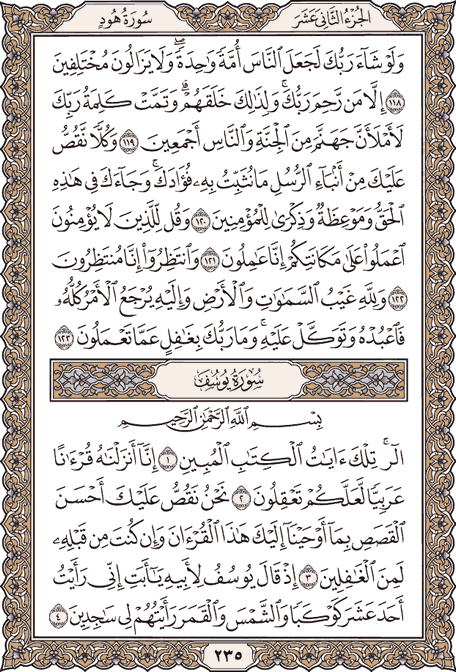 الجزء الثاني عشر
سورة هود
وَلَوْ شَآءَ رَبُّكَ لَجَعَلَ ٱلنَّاسَ أُمَّةً وَٰحِدَةً ۖ وَلَا يَزَالُونَ مُخْتَلِفِينَ
١١٨ إِلَّا مَن رَّحِمَ رَبُّكَ ۚ وَلِذَٰلِكَ خَلَقَهُمْ ۗ وَتَمَّتْ كَلِمَةُ رَبِّكَ
لَأَمْلَأَنَّ جَهَنَّمَ مِنَ ٱلْجِنَّةِ وَٱلنَّاسِ أَجْمَعِينَ ١١٩ وَكُلًّا نَّقُصُّ
عَلَيْكَ مِنْ أَنۢبَآءِ ٱلرُّسُلِ مَا نُثَبِّتُ بِهِۦ فُؤَادَكَ ۚ وَجَآءَكَ فِى هَٰذِهِ
ٱلْحَقُّ وَمَوْعِظَةٌ وَذِكْرَىٰ لِلْمُؤْمِنِينَ ١٢٠ وَقُل لِّلَّذِينَ لَا يُؤْمِنُونَ
ٱعْمَلُوا۟ عَلَىٰ مَكَانَتِكُمْ إِنَّا عَٰمِلُونَ ١٢١ وَٱنتَظِرُوٓا۟ إِنَّا مُنتَظِرُونَ
١٢٢ وَلِلَّهِ غَيْبُ ٱلسَّمَٰوَٰتِ وَٱلْأَرْضِ وَإِلَيْهِ يُرْجَعُ ٱلْأَمْرُ كُلُّهُۥ
فَٱعْبُدْهُ وَتَوَكَّلْ عَلَيْهِ ۚ وَمَا رَبُّكَ بِغَٰفِلٍ عَمَّا تَعْمَلُونَ ١٢٣
سُورَةُ يُوسُفَ
بِسْمِ ٱللَّهِ ٱلرَّحْمَٰنِ ٱلرَّحِيمِ
الٓر ۚ تِلْكَ ءَايَٰتُ ٱلْكِتَٰبِ ٱلْمُبِينِ ١ إِنَّآ أَنزَلْنَٰهُ قُرْءَٰنًا
عَرَبِيًّا لَّعَلَّكُمْ تَعْقِلُونَ ٢ نَحْنُ نَقُصُّ عَلَيْكَ أَحْسَنَ
ٱلْقَصَصِ بِمَآ أَوْحَيْنَآ إِلَيْكَ هَٰذَا ٱلْقُرْءَانَ وَإِن كُنتَ مِن قَبْلِهِۦ
لَمِنَ ٱلْغَٰفِلِينَ ٣ إِذْ قَالَ يُوسُفُ لِأَبِيهِ يَٰٓأَبَتِ إِنِّى رَأَيْتُ
أَحَدَ عَشَرَ كَوْكَبًا وَٱلشَّمْسَ وَٱلْقَمَرَ رَأَيْتُهُمْ لِى سَٰجِدِينَ ٤
٢٣٥